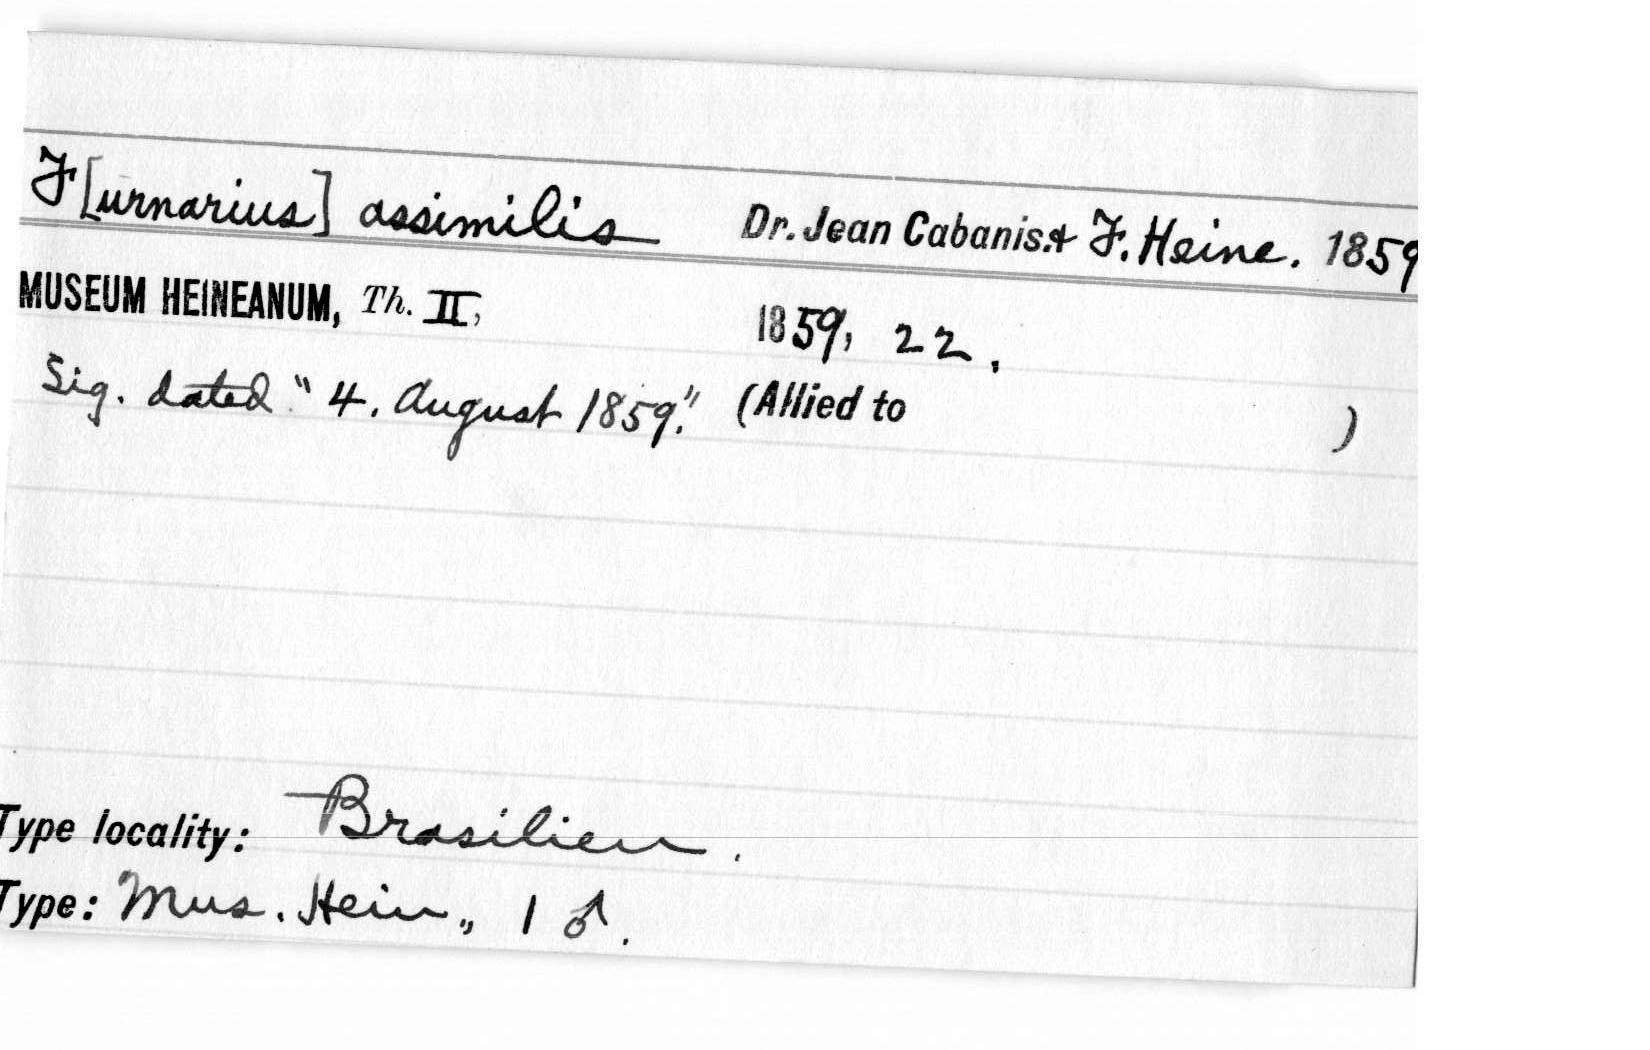 F[urnarius] assimilis Dr. Jean Cabanis. & F. Heine. 1859
MUSEUM HEINEANUM, Th. II, 1859, 22.
Sig. dated "4. August 1859." (Allied to )
Type locality: Brasilien.
Type: Mus. Hein., 1 ♂.